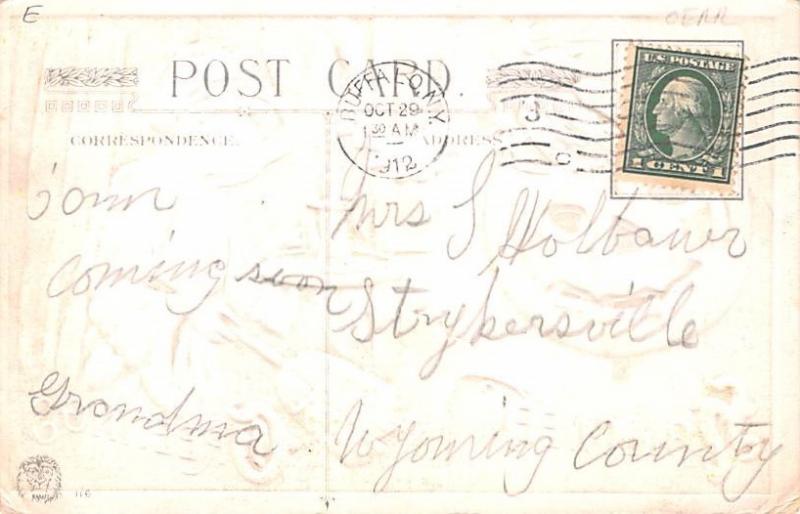 E
OEAR
POST CARD.
U.S. POSTAGE
1 CENT 1
BUFFALO, N.Y.
OCT 29
1 30 AM
1912
3
CORRESPONDENCE.
ADDRESS
coming soon
Grandma
Mrs J Holbauer
Strykersville
Wyoming County
116